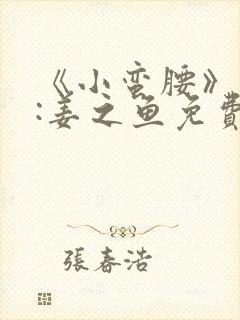 《小蛮腰》
:姜之鱼免費
張春浩